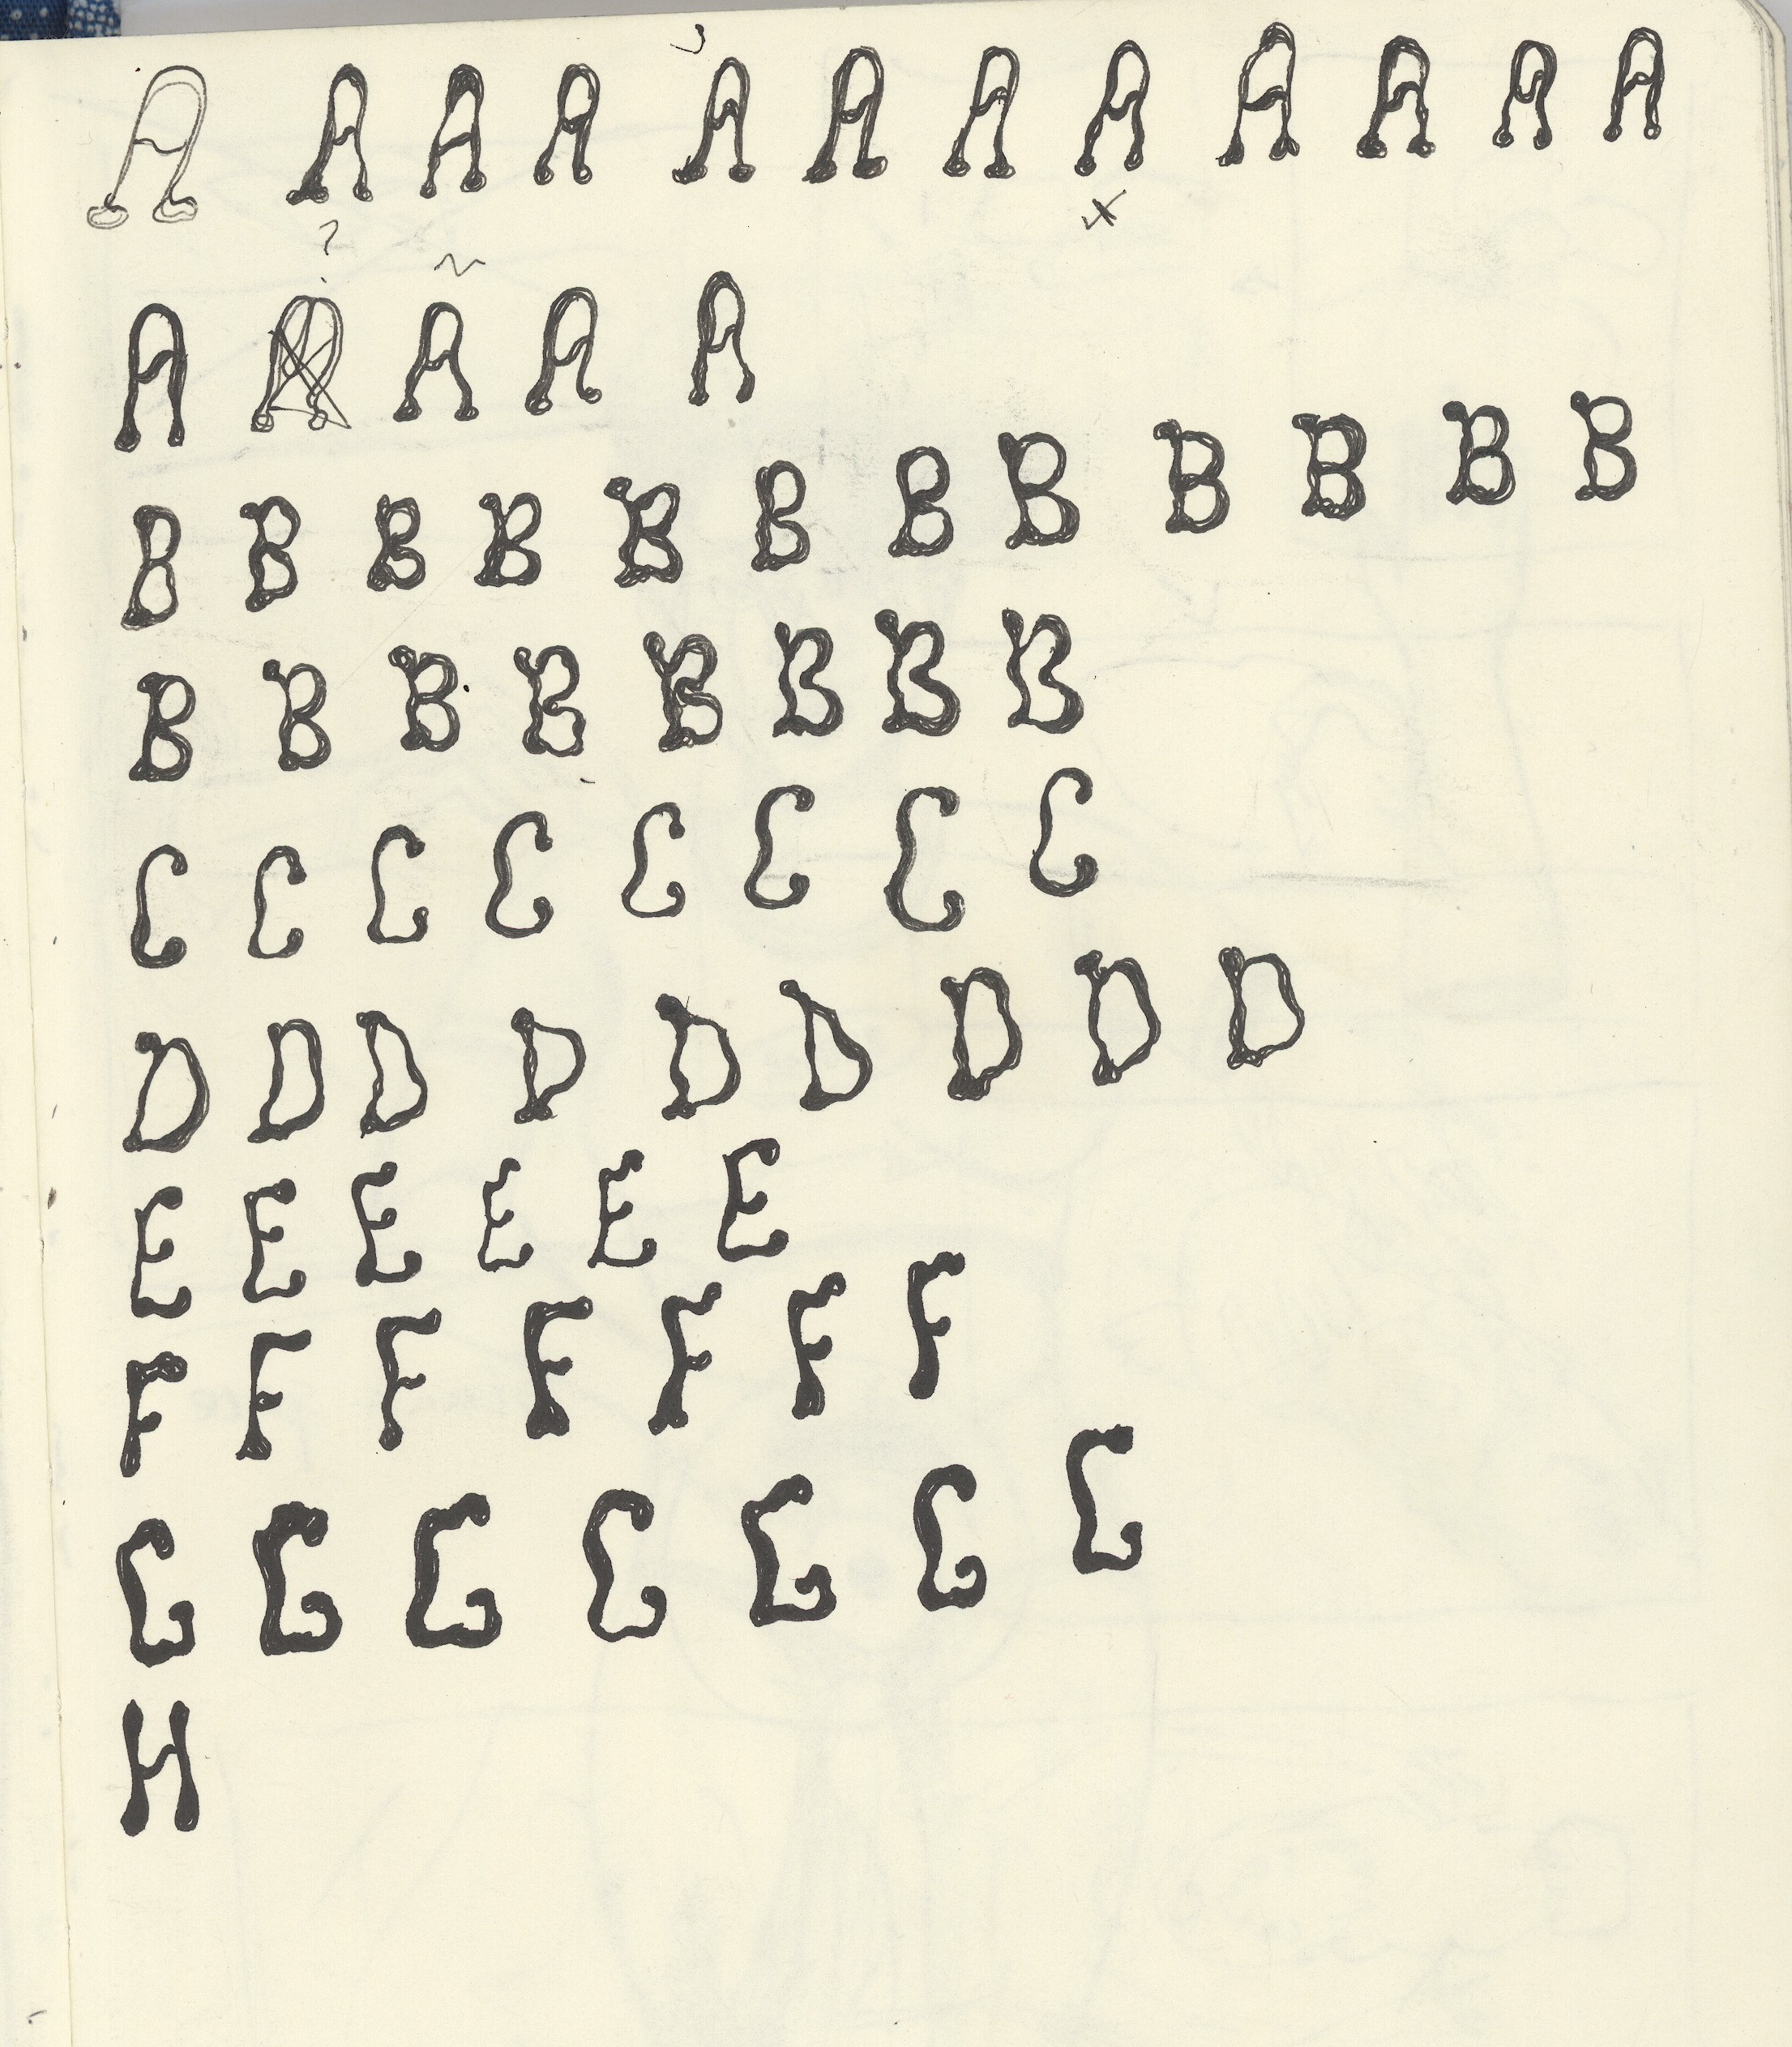 A A A A A A A A A A A A
? x
~
A A A A A
B B B B B B B B B B B B
B B B B B B B B
C C C C C C C C
D D D D D D D D D
E E E E E E
F F F F F F F
G G G G G G G
H